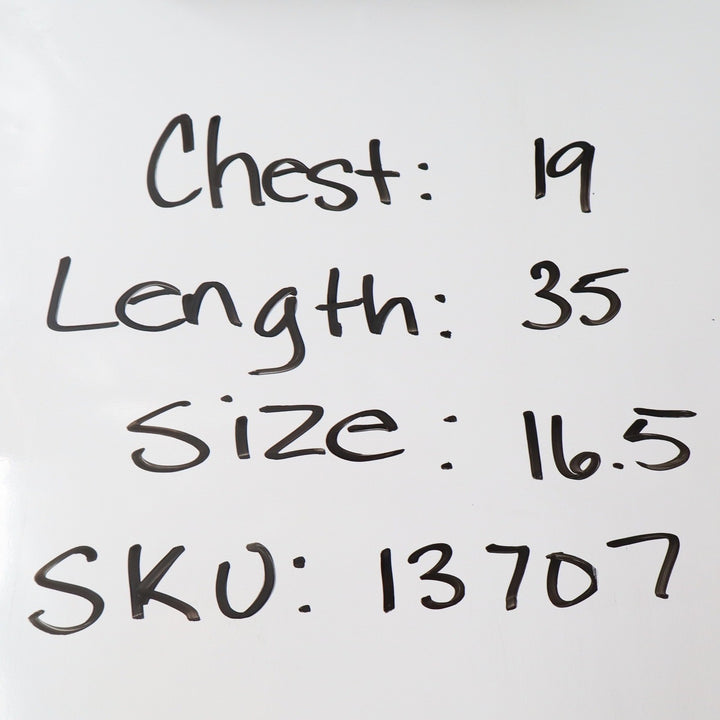 Chest: 19
Length: 35
Size: 16.5
SKU: 13707